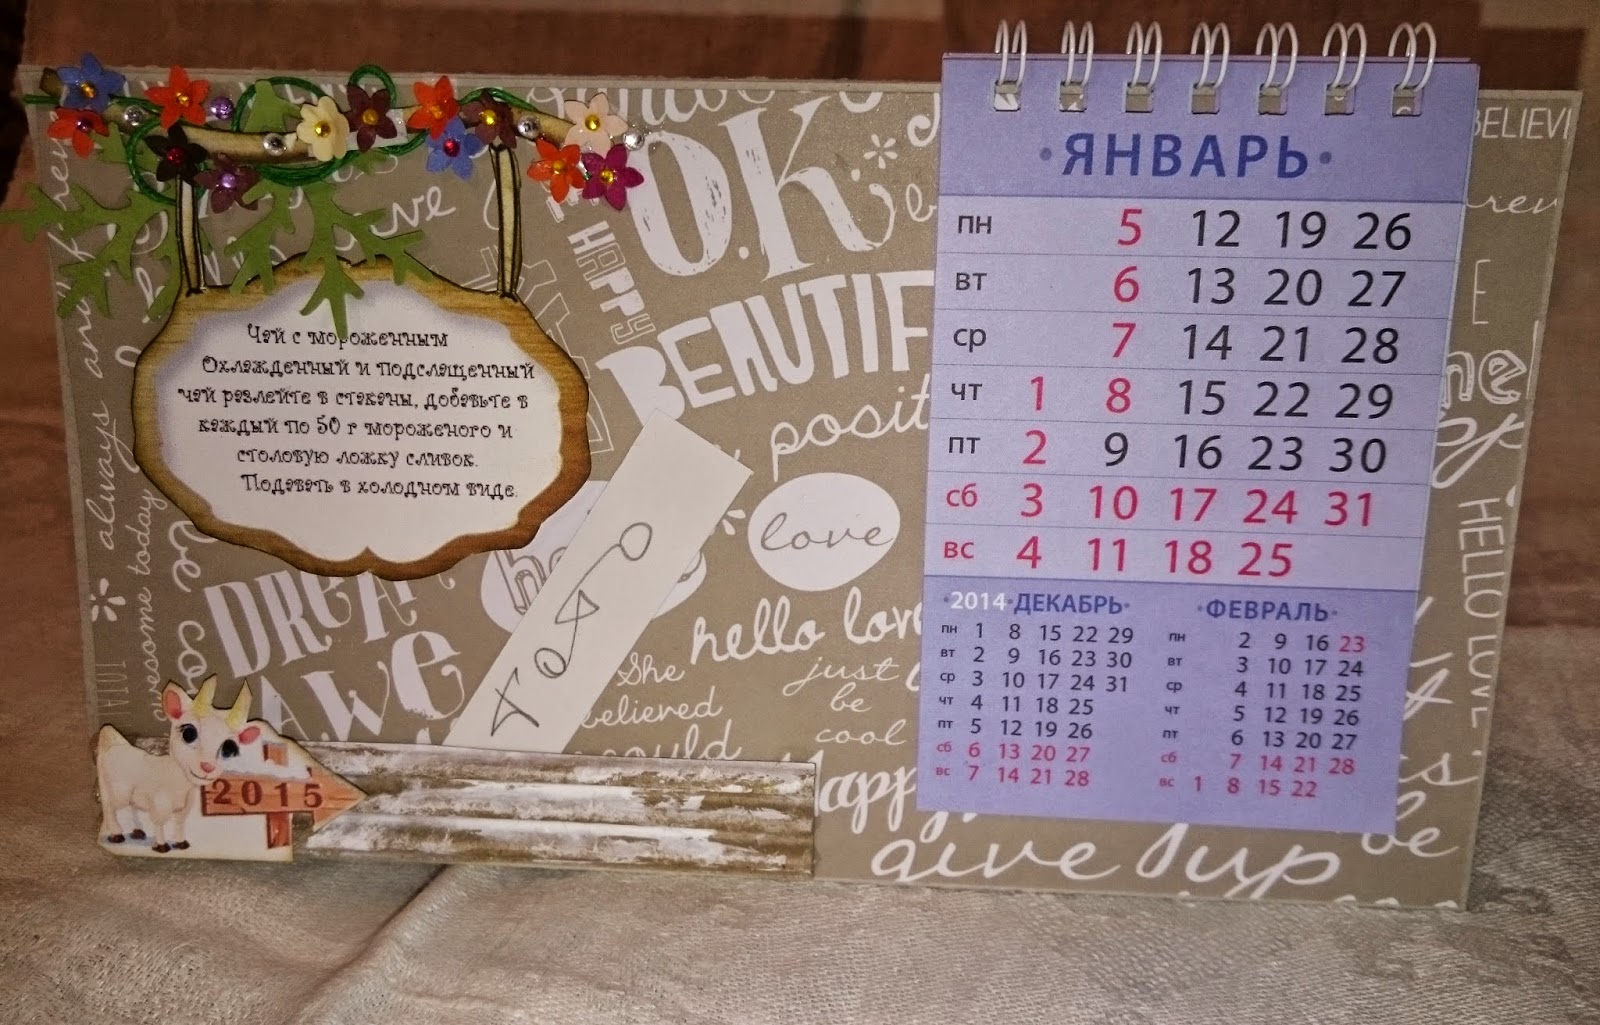 Чай с мороженным
Охлажденный и подслащенный
чай разлейте в стаканы, добавьте в
каждый по 50 г мороженого и
столовую ложку сливок.
Подавать в холодном виде.
O.K
HAPPY
BEAUTIF
posit
love
hello love
She
believed
could
just
be
cool
happy
give up
be
always
awesome today
be co
DREA
AWe
2015
BELIEVE
HELLO LOVE
•ЯНВАРЬ•
пн 5 12 19 26
вт 6 13 20 27
ср 7 14 21 28
чт 1 8 15 22 29
пт 2 9 16 23 30
сб 3 10 17 24 31
вс 4 11 18 25
•2014•ДЕКАБРЬ•
пн 1 8 15 22 29
вт 2 9 16 23 30
ср 3 10 17 24 31
чт 4 11 18 25
пт 5 12 19 26
сб 6 13 20 27
вс 7 14 21 28
•ФЕВРАЛЬ•
пн 2 9 16 23
вт 3 10 17 24
ср 4 11 18 25
чт 5 12 19 26
пт 6 13 20 27
сб 7 14 21 28
вс 1 8 15 22